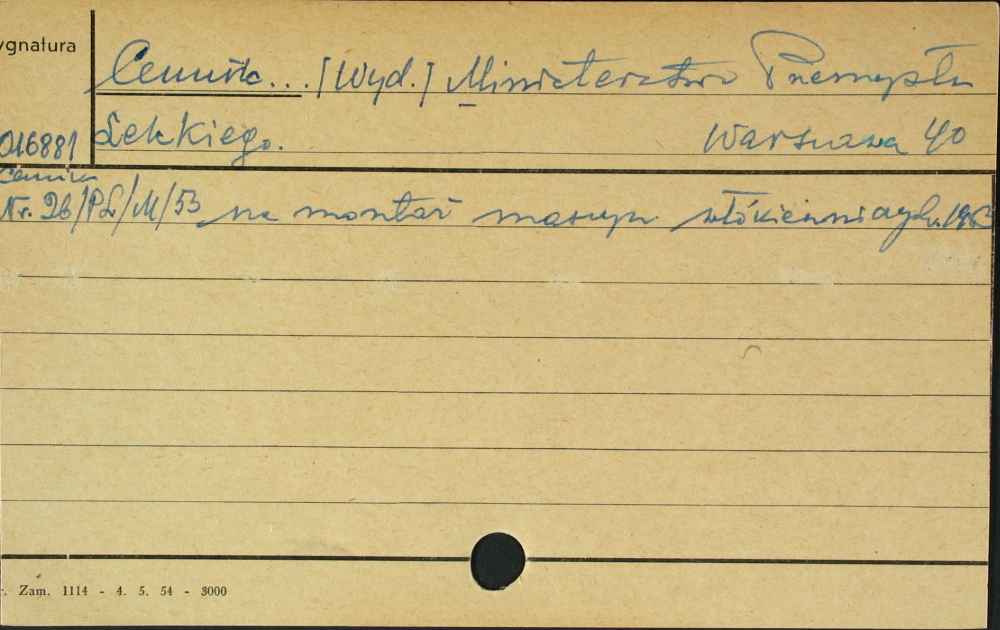 ygnatura
Cennik... [Wyd.] Ministerstwo Przemysłu
016881 Lekkiego. Warszawa 40
Cennik
Nr. 26/PL/M/53 na montaż maszyn włókienniczych.
Zam. 1114 - 4. 5. 54 - 3000